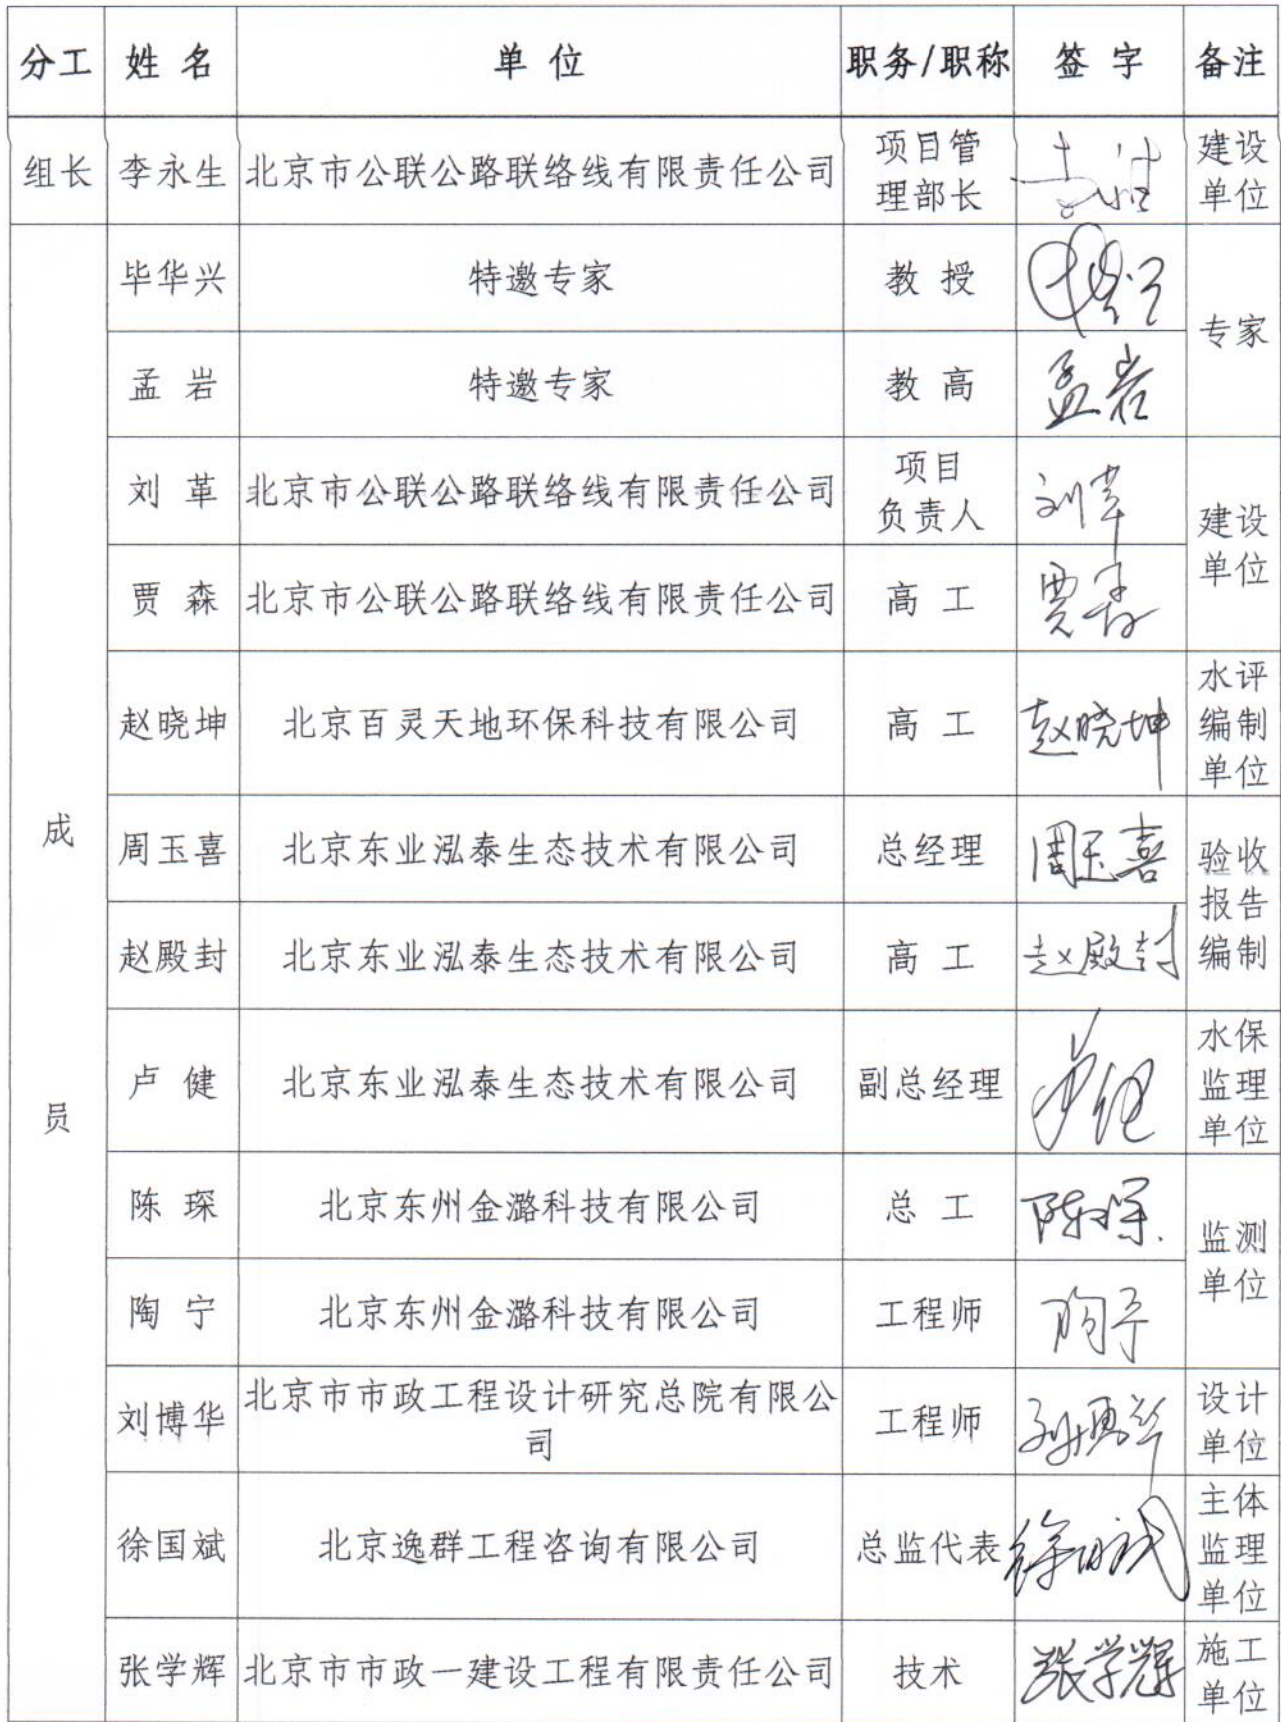 分工 姓 名 单 位 职务/职称 签 字 备注
组长 李永生 北京市公联公路联络线有限责任公司 项目管
理部长 建设
单位
成
员
毕华兴 特邀专家 教 授 专家
孟 岩 特邀专家 教 高 孟岩
刘 革 北京市公联公路联络线有限责任公司 项目
负责人 刘革 建设
单位
贾 森 北京市公联公路联络线有限责任公司 高 工 贾森
赵晓坤 北京百灵天地环保科技有限公司 高 工 赵晓坤 水评
编制
单位
周玉喜 北京东业泓泰生态技术有限公司 总经理 周玉喜 验收
报告
编制
赵殿封 北京东业泓泰生态技术有限公司 高 工 赵殿封
卢 健 北京东业泓泰生态技术有限公司 副总经理 卢健 水保
监理
单位
陈 琛 北京东州金潞科技有限公司 总 工 陈琛 监测
单位
陶 宁 北京东州金潞科技有限公司 工程师 陶宁
刘博华 北京市市政工程设计研究总院有限公
司 工程师 刘博华 设计
单位
徐国斌 北京逸群工程咨询有限公司 总监代表 徐国斌 主体
监理
单位
张学辉 北京市市政一建设工程有限责任公司 技术 张学辉 施工
单位